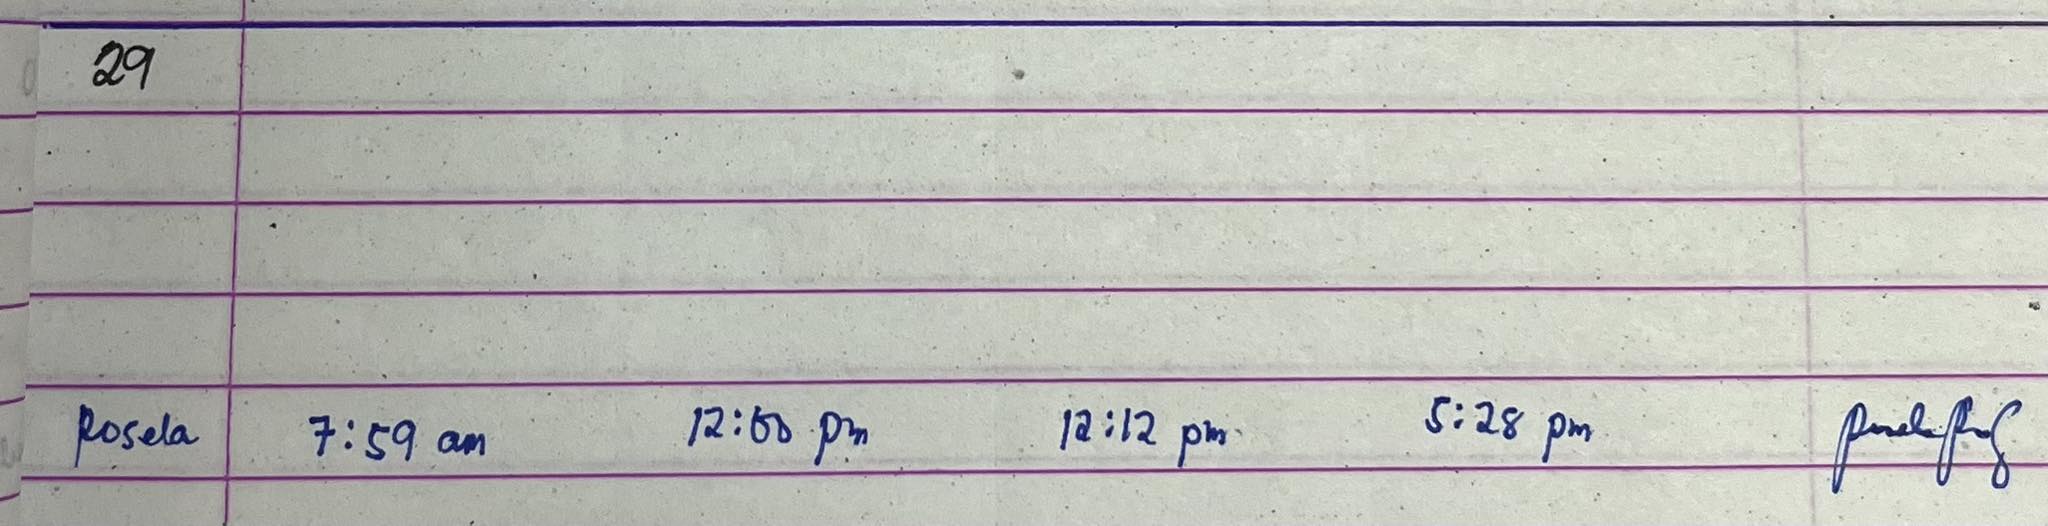 29
Rosela 7:59 am 12:00 pm 12:12 pm 5:28 pm